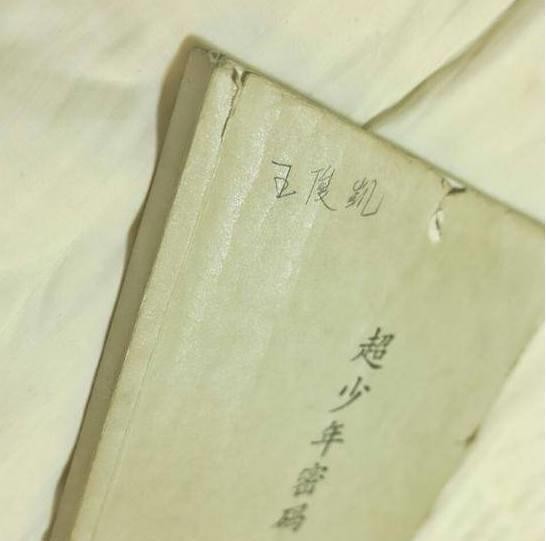 王俊凯
超少年密码